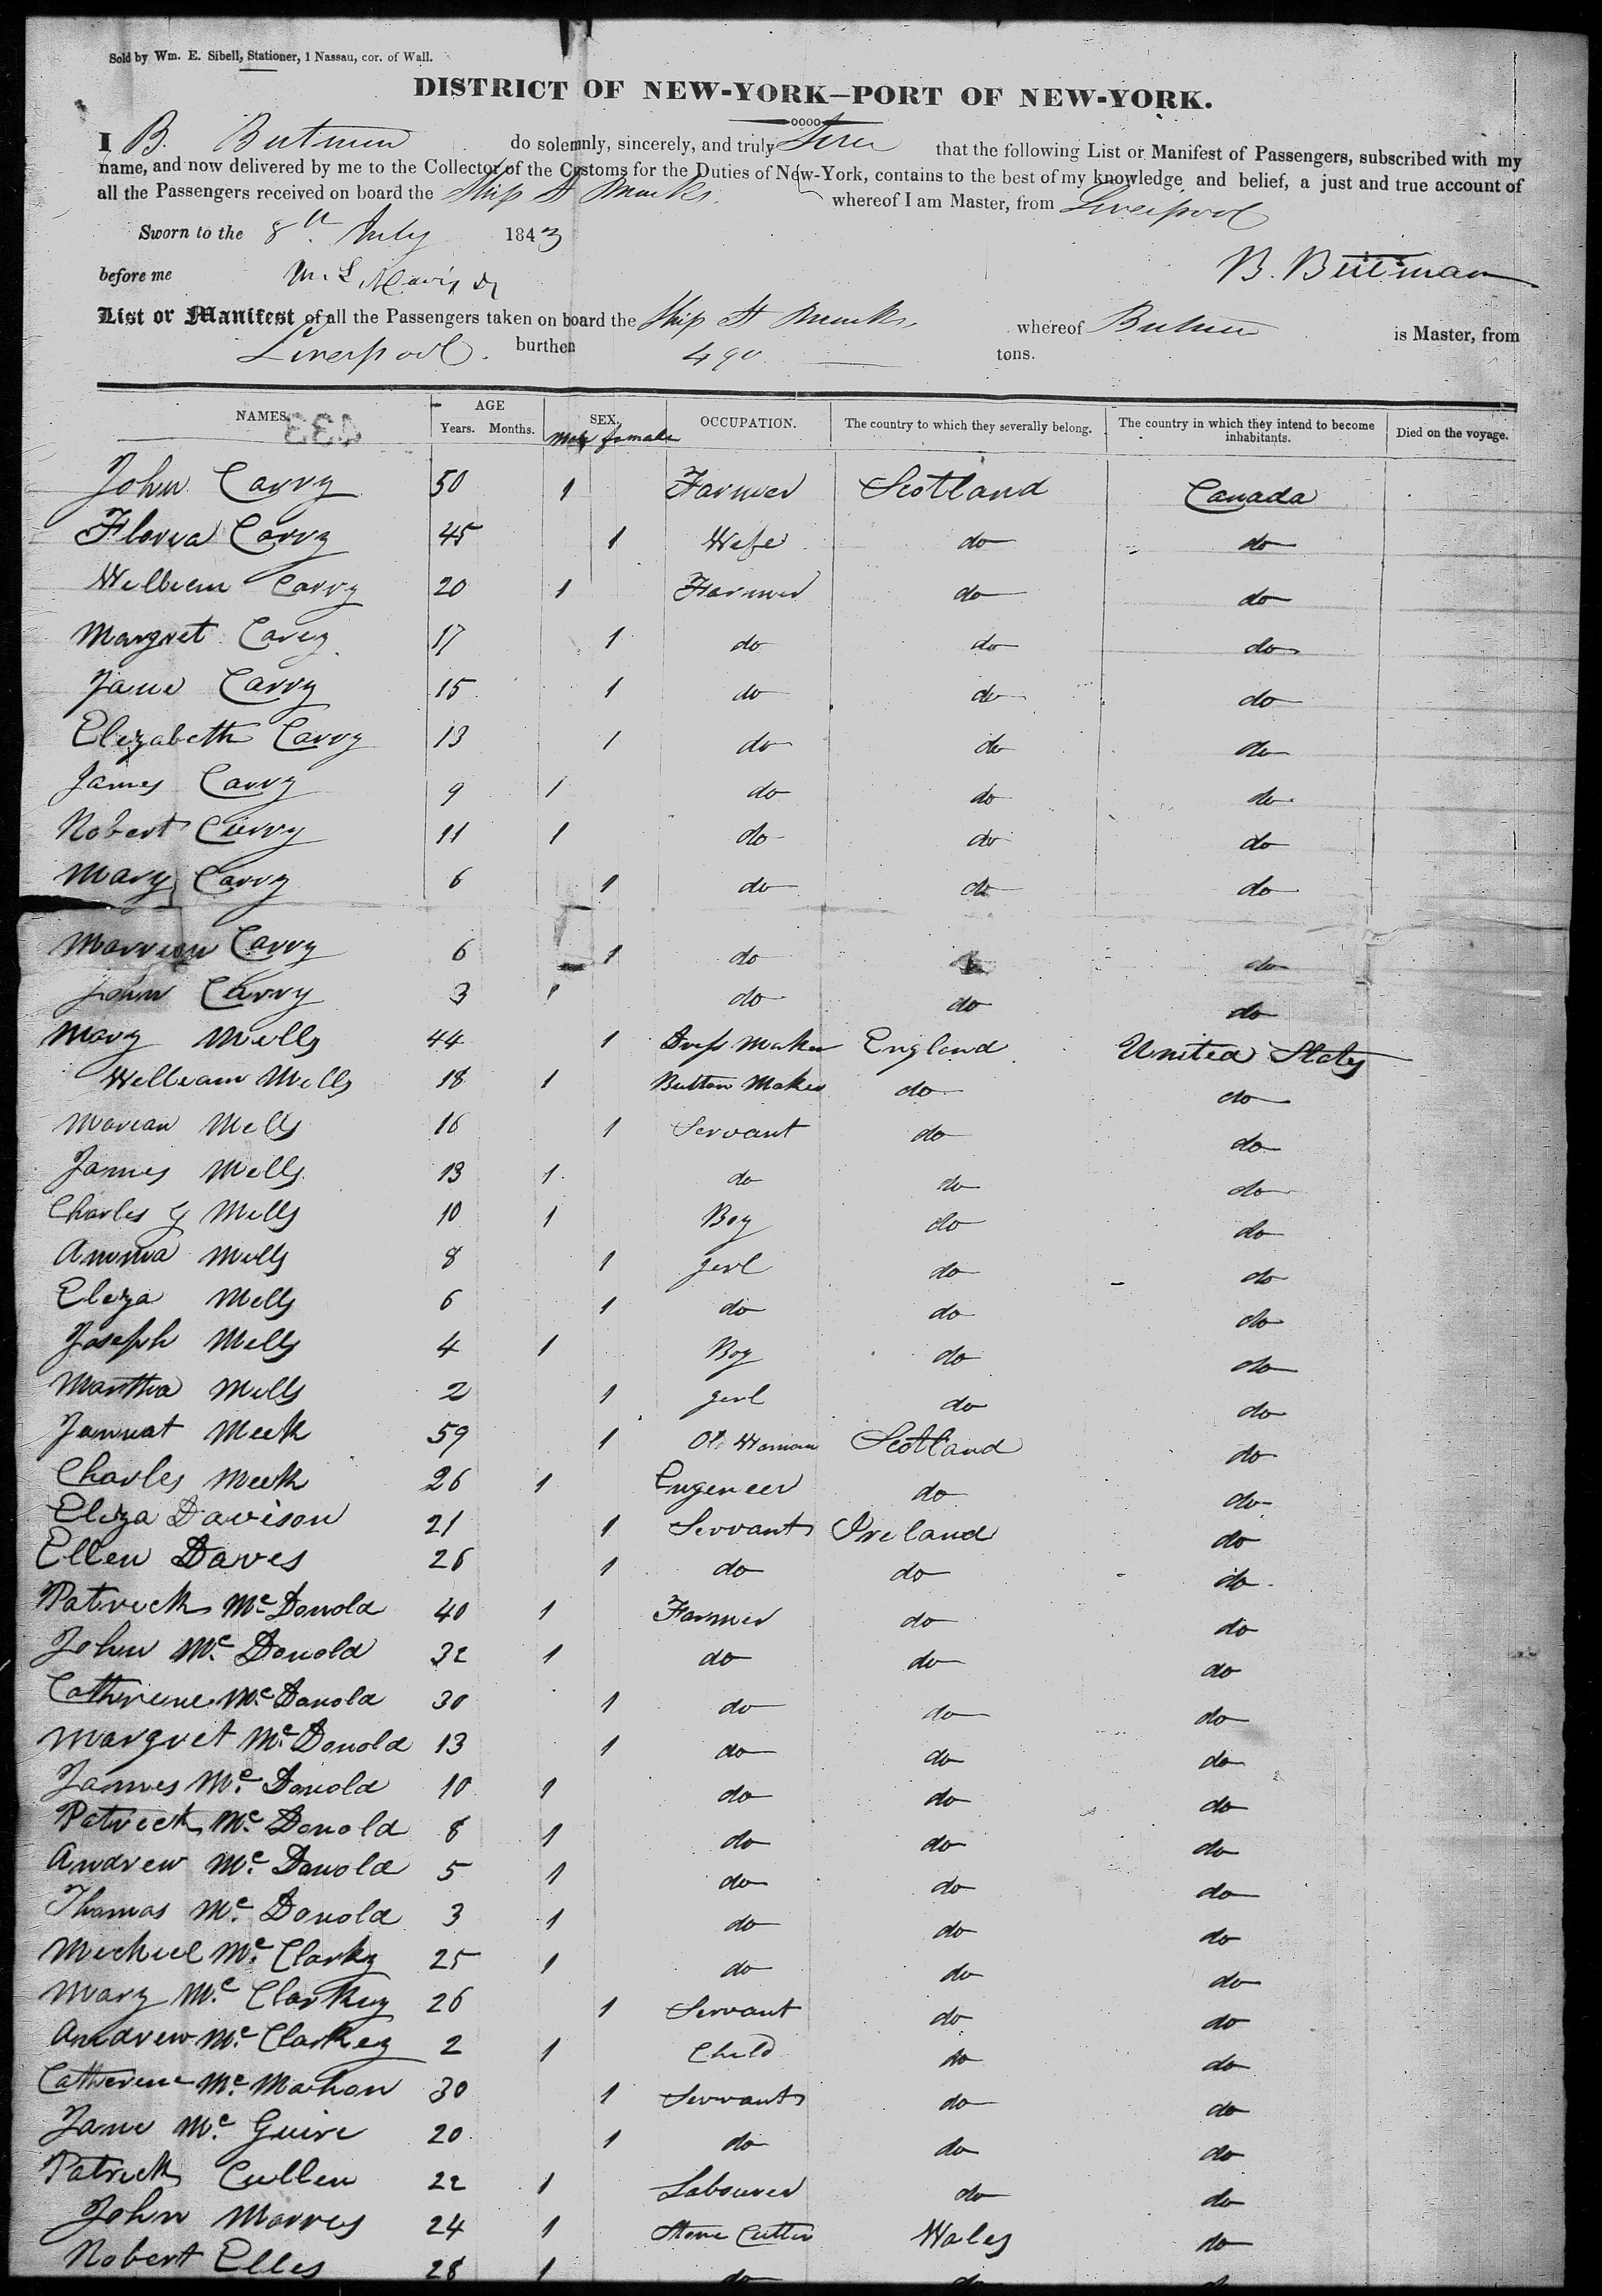 Sold by Wm. E. Sibell, Stationer, 1 Nassau, cor. of Wall.
DISTRICT OF NEW-YORK—PORT OF NEW-YORK.
I B. Butman do solemnly, sincerely, and truly that the following List or Manifest of Passengers, subscribed with my
name, and now delivered by me to the Collector of the Customs for the Duties of New-York, contains to the best of my knowledge and belief, a just and true account of
all the Passengers received on board the Ship St Marks. whereof I am Master, from Liverpool
Sworn to the 8th July 1843
before me
B. Butman
List or Manifest of all the Passengers taken on board the Ship St Marks, whereof Butman is Master, from
Liverpool. burthen 490 tons.
NAMES. AGE SEX. OCCUPATION. The country to which they severally belong. The country in which they intend to become inhabitants. Died on the voyage.
Years. Months. Male female
433
John Carry 50 1 Farmer Scotland Canada
Florva Carry 45 1 Wife do do
William Carry 20 1 Farmer do do
Margret Carry 17 1 do do do
Jane Carry 15 1 do do do
Elizabeth Carry 13 1 do do do
James Carry 9 1 do do do
Robert Curry 11 1 do do do
Mary Carry 6 1 do do do
Marrion Carry 6 1 do do
John Carry 3 1 do do do
Mary Mills 44 1 Dress Maker England United States
William Mills 18 1 Button Maker do do
Marian Mills 16 1 Servant do do
James Mills 13 1 do do do
Charles G Mills 10 1 Boy do do
Amma Mills 8 1 girl do do
Eliza Mills 6 1 do do do
Joseph Mills 4 1 Boy do do
Martha Mills 2 1 girl do do
Jannat Meek 59 1 Old Woman Scotland do
Charles Meek 26 1 Engeneer do do
Eliza Davison 21 1 Servant Ireland do
Ellen Daves 26 1 do do do
Patrick Mc Donold 40 1 Farmer do do
John Mc Donold 32 1 do do do
Catherine Mc Donold 30 1 do do do
Margret Mc Donold 13 1 do do do
James Mc Donold 10 1 do do do
Patrick Mc Donold 8 1 do do do
Andrew Mc Donold 5 1 do do do
Thomas Mc Donold 3 1 do do do
Michiel Mc Clarky 25 1 do do do
Mary Mc Clarkey 26 1 Servant do do
Andrew Mc Clarkey 2 1 Child do do
Catherine Mc Mahon 30 1 Servant do do
Jane Mc Guire 20 1 do do do
Patrick Cullen 22 1 Labourer do do
John Morres 24 1 Stone Cutter Wales do
Robert Elles 28 1 do do do